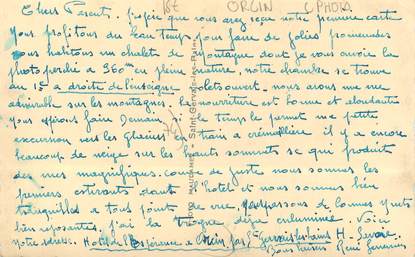 Chers Parents. J'espère que vous avez reçu notre première carte
nous profitons du beau temps pour faire de jolies promenades
nous habitons un chalet de montagne dont je vous envoie la
photo perché à 960m en pleine nature, notre chambre se trouve
au 1er à droite de l'enseigne volets ouverts. nous avons une vue
admirable sur les montagnes. La nourriture est bonne et abondante
nous espérons faire Demain, si le temps le permet une petite
excursion vers les Glaciers en train à crémaillère il y a encore
beaucoup de neige sur les hauts sommets ce qui produit
des mes magnifiques. comme de juste nous sommes les
premiers estivants dans l'hotel et nous sommes bien
tranquilles à tout point de vue, nous passons de bonnes nuits
bien reposantes, j'ai la trogne déjà enluminée. Voici
notre adresse. Hotel de l'Espérance à par St Gervais les bains H. Savoie.
Bons baisers René